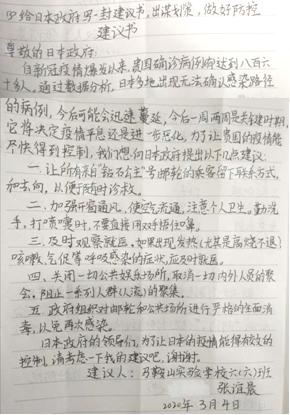 ㈣给日本政府写一封建议书,出谋划策,做好防控
建议书
尊敬的日本政府:
自新冠疫情爆发以来,贵国确诊病例应达到八百六
十多人,通过数据分析,日本多地出现无法确认感染路径
的病例,今后可能会迅速蔓延,今后一周两周是关键时期,
它将决定疫情平息还是进一步恶化。为了让贵国的疫情能
尽快得到控制,我们想向日本政府提出以下几点建议:
一.让所有和“钻石公主”号邮轮的乘客留下联系方式,
和去向,以便于随时诊救。
二.加强开窗通风,使空气流通,注意个人卫生。勤洗
手,打喷嚏时,不要直接用双手捂住口鼻。
三.及时观察就医,如果出现发热(尤其是高烧不退)
咳嗽,气促等呼吸感染的症状,应及时就医。
四.关闭一切公共娱乐场所,取消一切内外人员的聚
会,阻止一系列人群(人流)的聚集。
五.政府组织对邮轮和公共场所进行严格的全面消
毒,以免再次感染。
日本政府的领导们,为了让日本的疫情能得有效的
控制,请考虑一下我的建议吧,谢谢。
建议人:马鞍山实验学校六(六)班
张谊晨
2020年3月4日